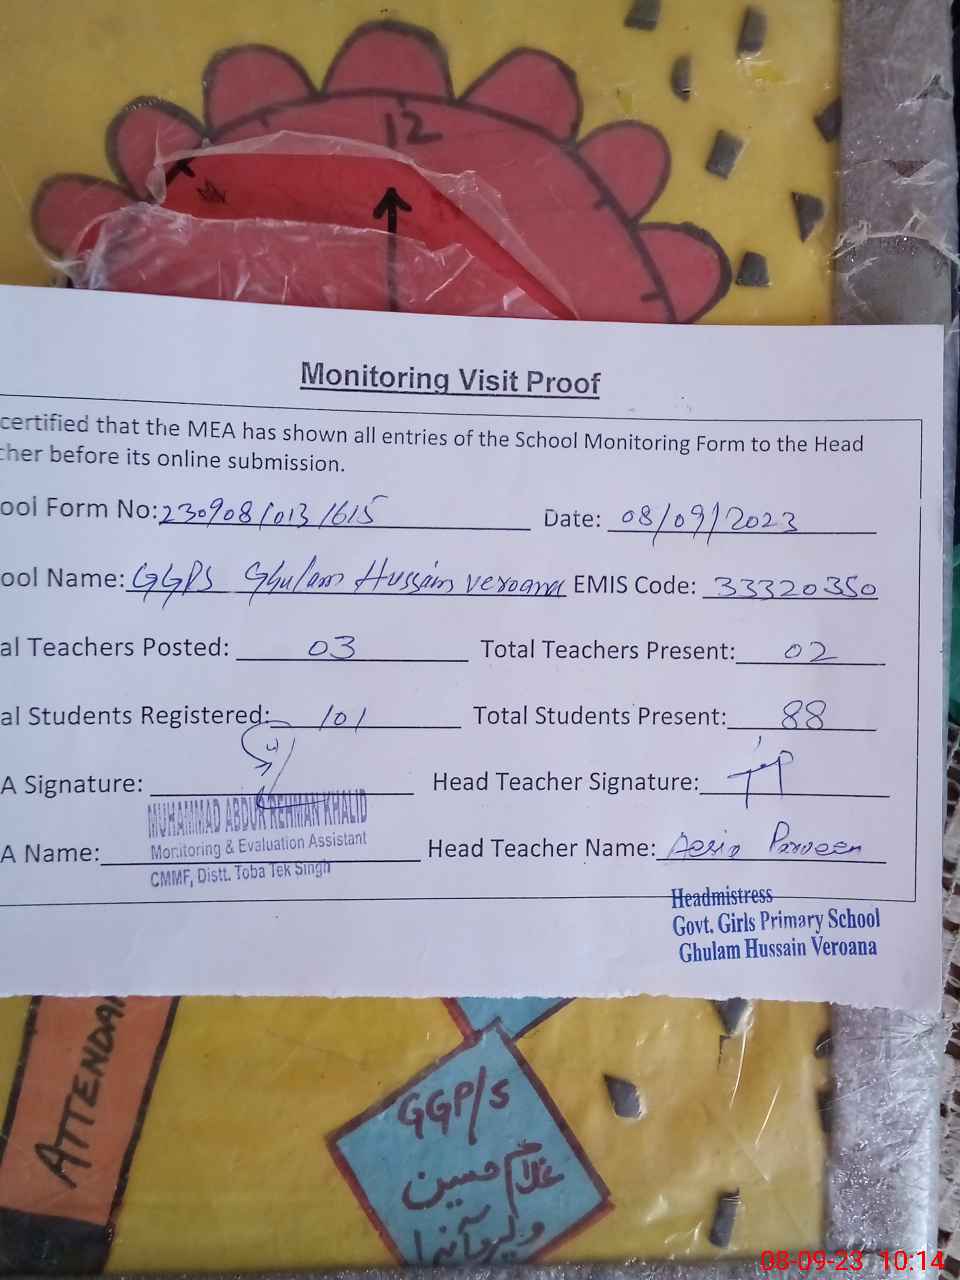 12
Monitoring Visit Proof
certified that the MEA has shown all entries of the School Monitoring Form to the Head
cher before its online submission.
ool Form No: 230908/013/1615 Date: 08/09/2023
ool Name: GGPS Ghulam Hussain Veroana EMIS Code: 33320350
al Teachers Posted: 03 Total Teachers Present: 02
al Students Registered: 101 Total Students Present: 88
A Signature: Head Teacher Signature:
MUHAMMAD ABDUR REHMAN KHALID
Monitoring & Evaluation Assistant
A Name: Head Teacher Name: Parveen
CMMF, Distt. Toba Tek Singh
Headmistress
Govt. Girls Primary School
Ghulam Hussain Veroana
ATTENDAN
GGP/S
غلام حسین
ویروآنہ
08-09-23 10:14